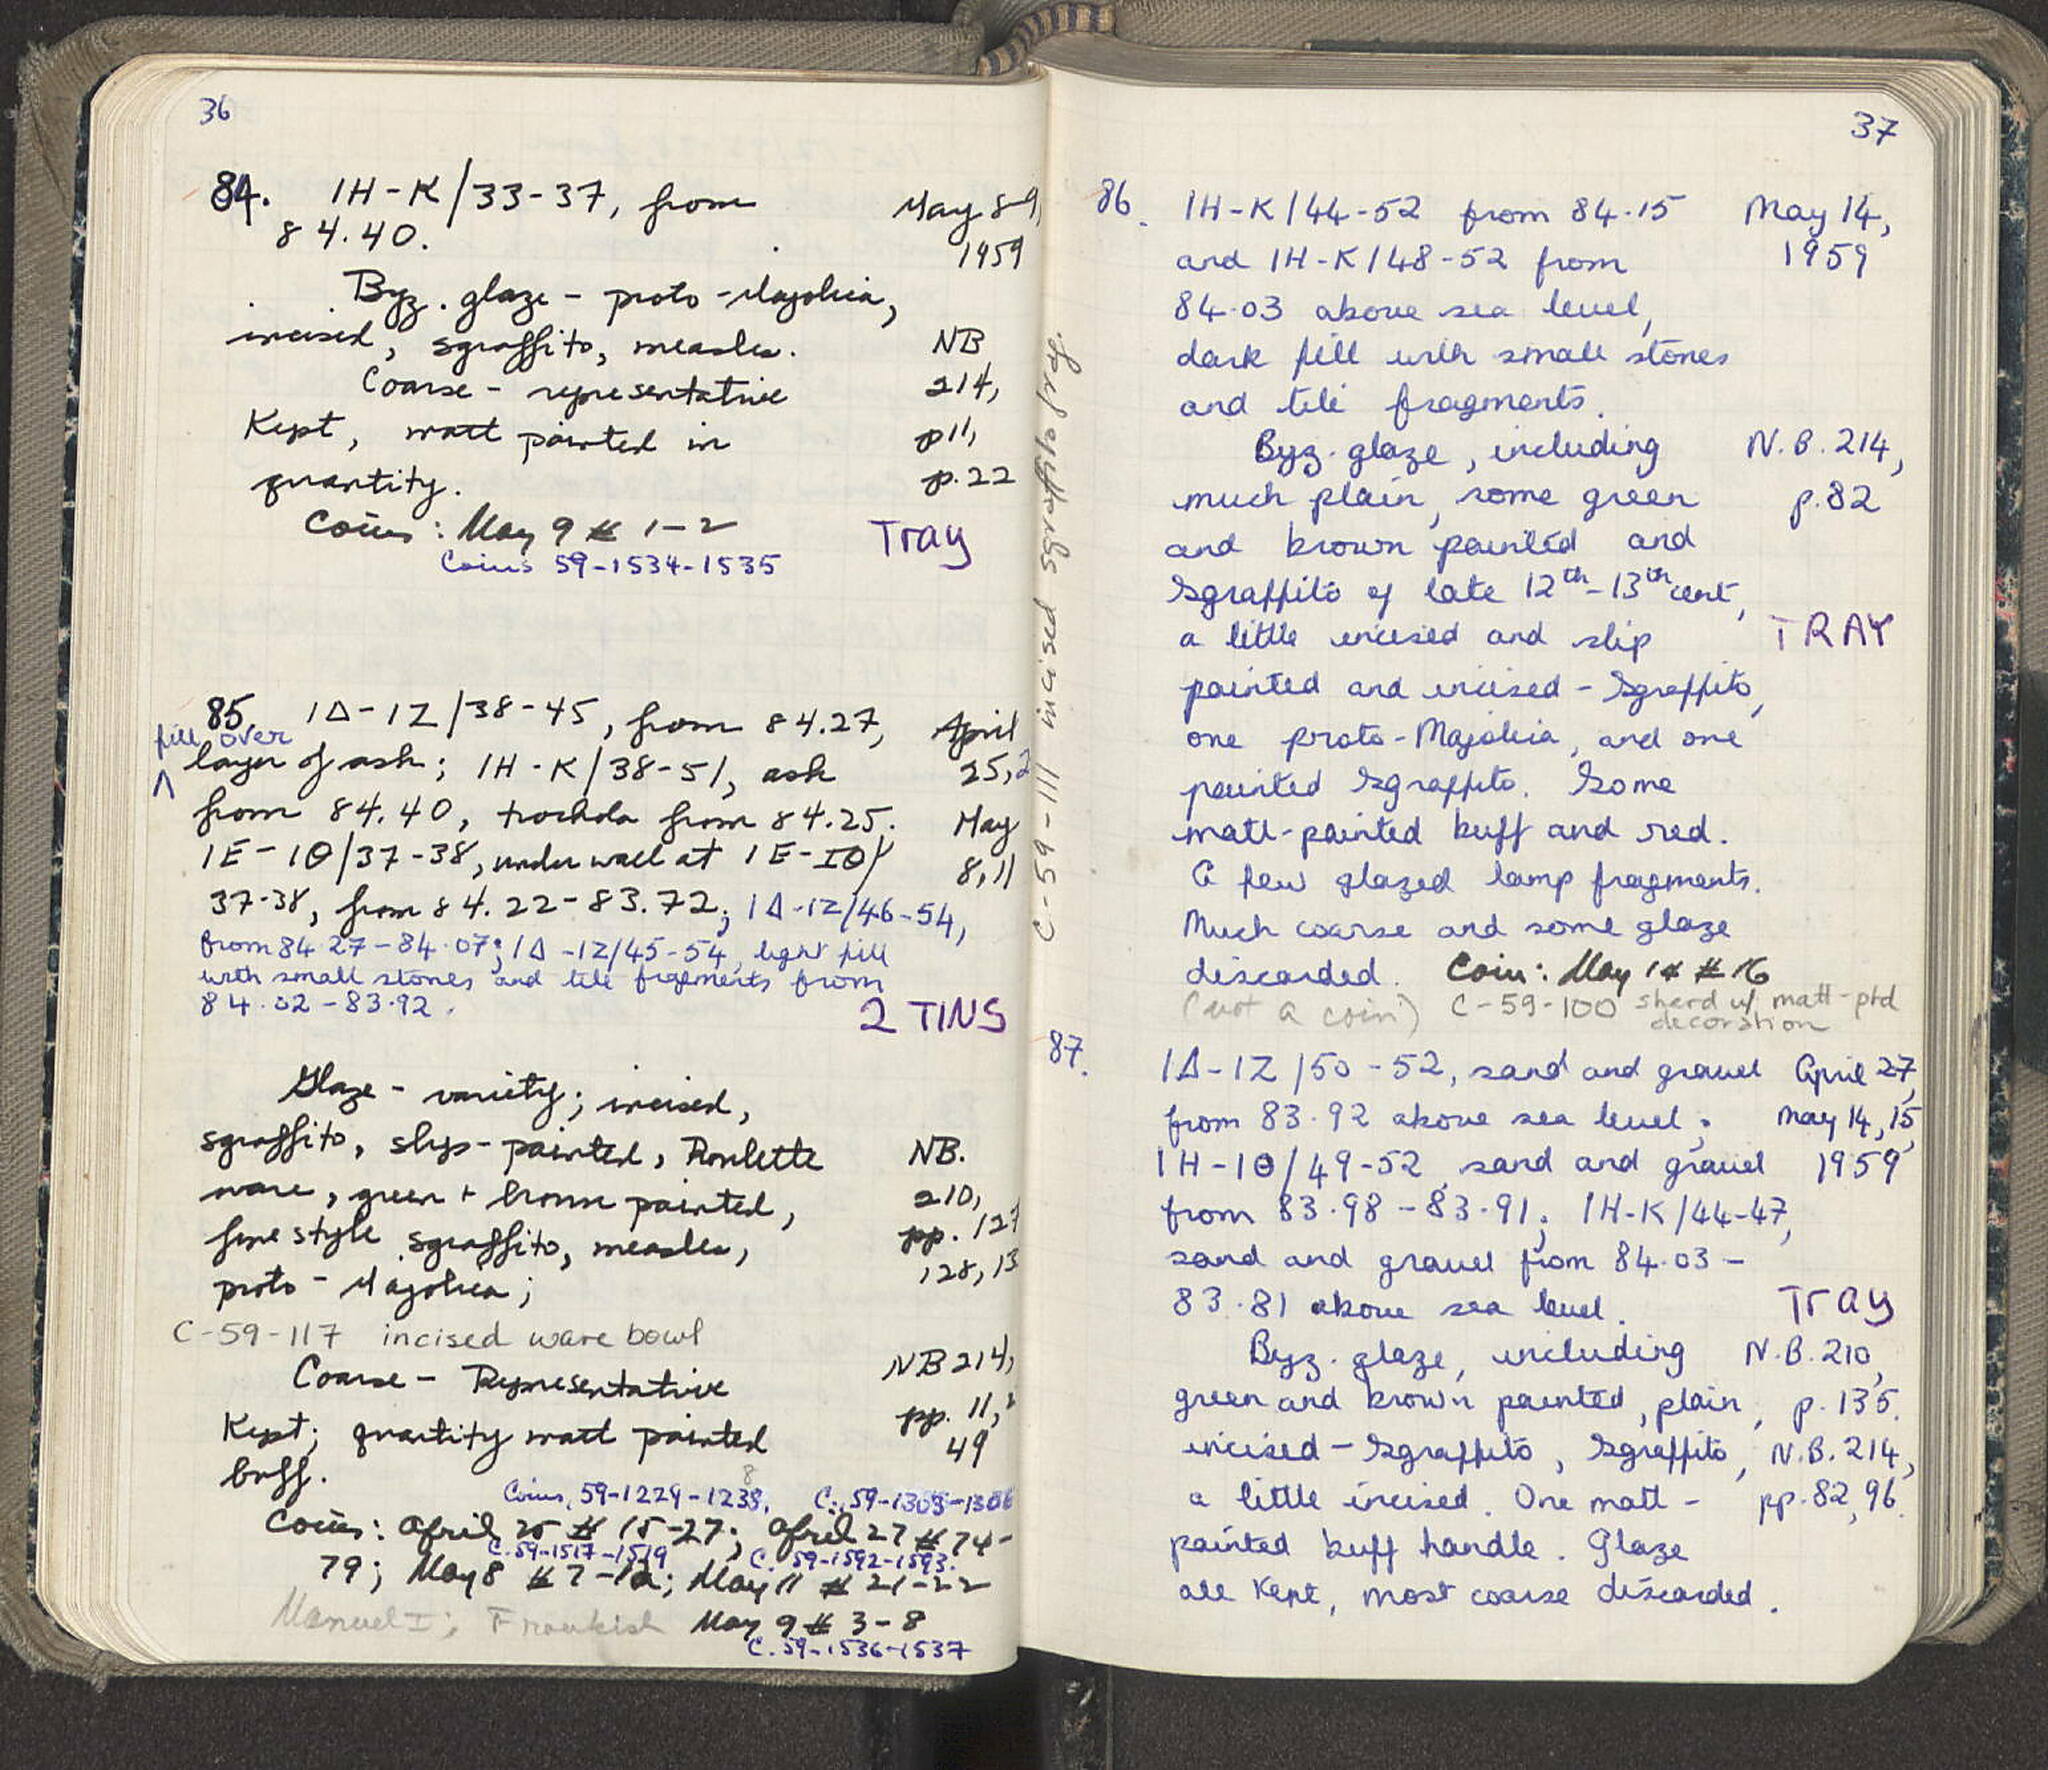 36
84. 1H-K/33-37, from May 8-9,
84.40. 1959
Byz. glaze - proto-Majolica,
incised, sgraffito, measles. NB
Coarse - representative 214,
Kept, matt painted in p11,
quantity. p.22
Coins: May 9 # 1-2 Tray
Coins 59-1534-1535
85. 1Δ-1Z/38-45, from 84.27, April
fill over
layer of ash; 1H-K/38-51, ash 25, 2
from 84.40, trochola from 84.25. May
1E-1Θ/37-38, under wall at 1E-IΘ/ 8,11
37-38, from 84.22-83.72; 1Δ-1Z/46-54,
from 84.27-84.07; 1Δ-1Z/45-54, light fill
with small stones and tile fragments from
84.02-83.92.
2 TINS
Glaze - variety; incised,
sgraffito, slip-painted, Roulette NB.
ware, green + brown painted, 210,
fine style sgraffito, measles, pp. 127
proto-Majolica; 128, 13
C-59-117 incised ware bowl
Coarse - Representative NB 214,
Kept; quantity matt painted pp. 11, 2
buff. 49
8
Coins, 59-1229-1238, C. 59-1303-1308
Coins: April 25 # 15-27; April 27 # 74-
C. 59-1517-1519 C. 59-1592-1593.
79; May 8 # 7-12; May 11 # 21-22
Manuel I; Frankish May 9 # 3-8
C. 59-1536-1537
C-59-111 incised sgraffito pl. fr.
37
86. 1H-K/44-52 from 84.15 May 14,
and 1H-K/48-52 from 1959
84.03 above sea level,
dark fill with small stones
and tile fragments.
Byz. glaze, including N.B. 214,
much plain, some green p. 82
and brown painted and
sgraffito of late 12th-13th cent,
a little incised and slip TRAY
painted and incised-sgraffito,
one proto-Majolica, and one
painted sgraffito. Some
matt-painted buff and red.
A few glazed lamp fragments.
Much coarse and some glaze
discarded. Coin: May 14 # 16
(not a coin) C-59-100 sherd w/ matt-ptd
decoration
87. 1Δ-1Z/50-52, sand and gravel April 27,
from 83.92 above sea level; May 14, 15,
1H-1Θ/49-52, sand and gravel 1959
from 83.98-83.91; 1H-K/44-47,
sand and gravel from 84.03-
83.81 above sea level. Tray
Byz. glaze, including N.B. 210,
green and brown painted, plain, p. 135.
incised-sgraffito, sgraffito, N.B. 214,
a little incised. One matt- pp. 82, 96.
painted buff handle. Glaze
all kept, most coarse discarded.